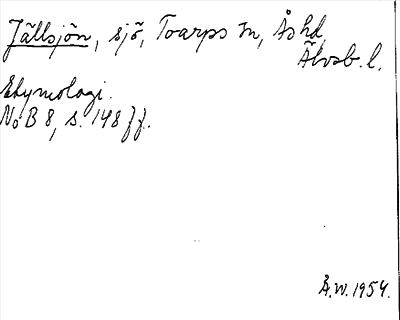 Jällsjön, sjö, Toarps sn, Åshd,
Älvsb. l.
Etymologi.
NoB 8, s. 148 ff.
Å.W. 1954.